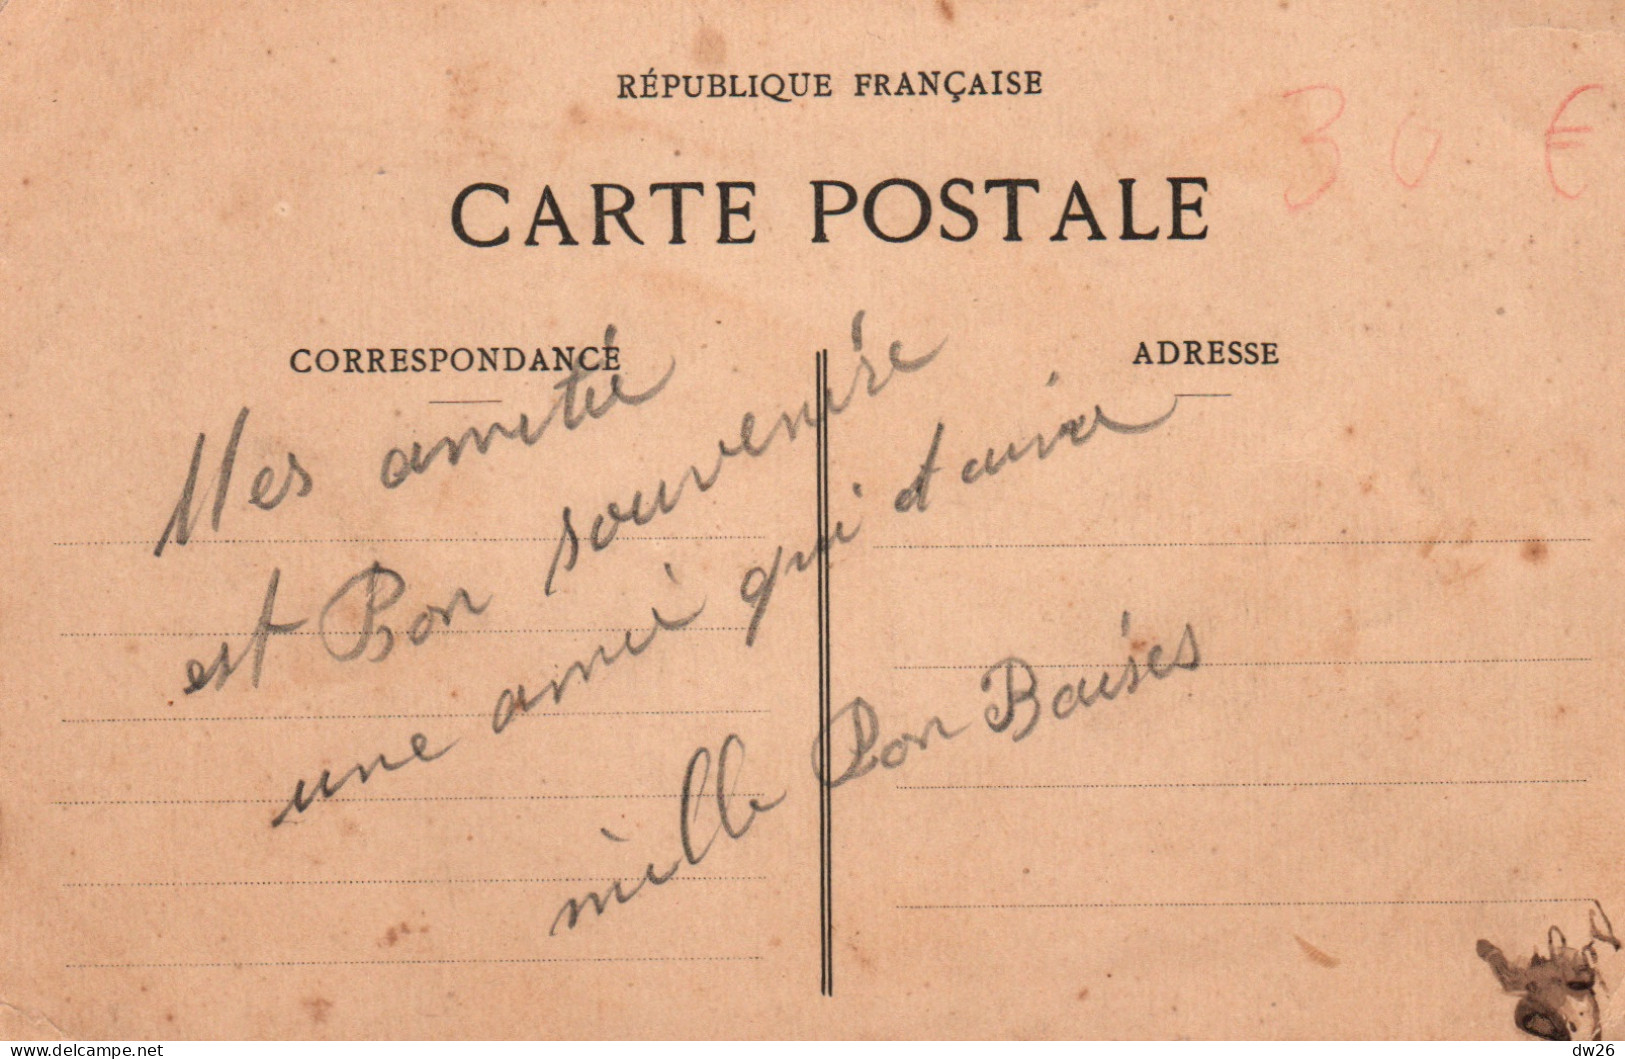 RÉPUBLIQUE FRANÇAISE
30 €
CARTE POSTALE
CORRESPONDANCE
ADRESSE
Mes amitié
est Bon souvenire
une amie qui t aime
mille Bon Baisés
delcampe.net
dw26